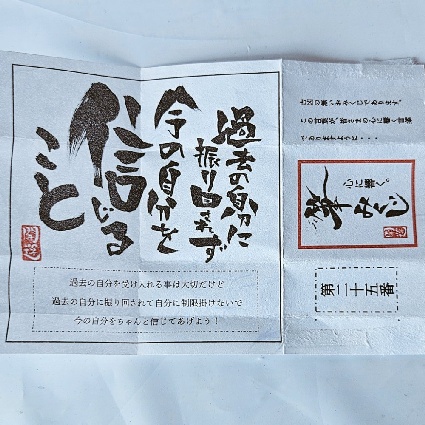 過去の自分に
振り回されず
今の自分を
信じる
こと
過去の自分を受け入れる事は大切だけど
過去の自分に振り回されて自分に制限掛けないで
今の自分をちゃんと信じてあげよう！
心に響く。
筆みくじ
第二十五番